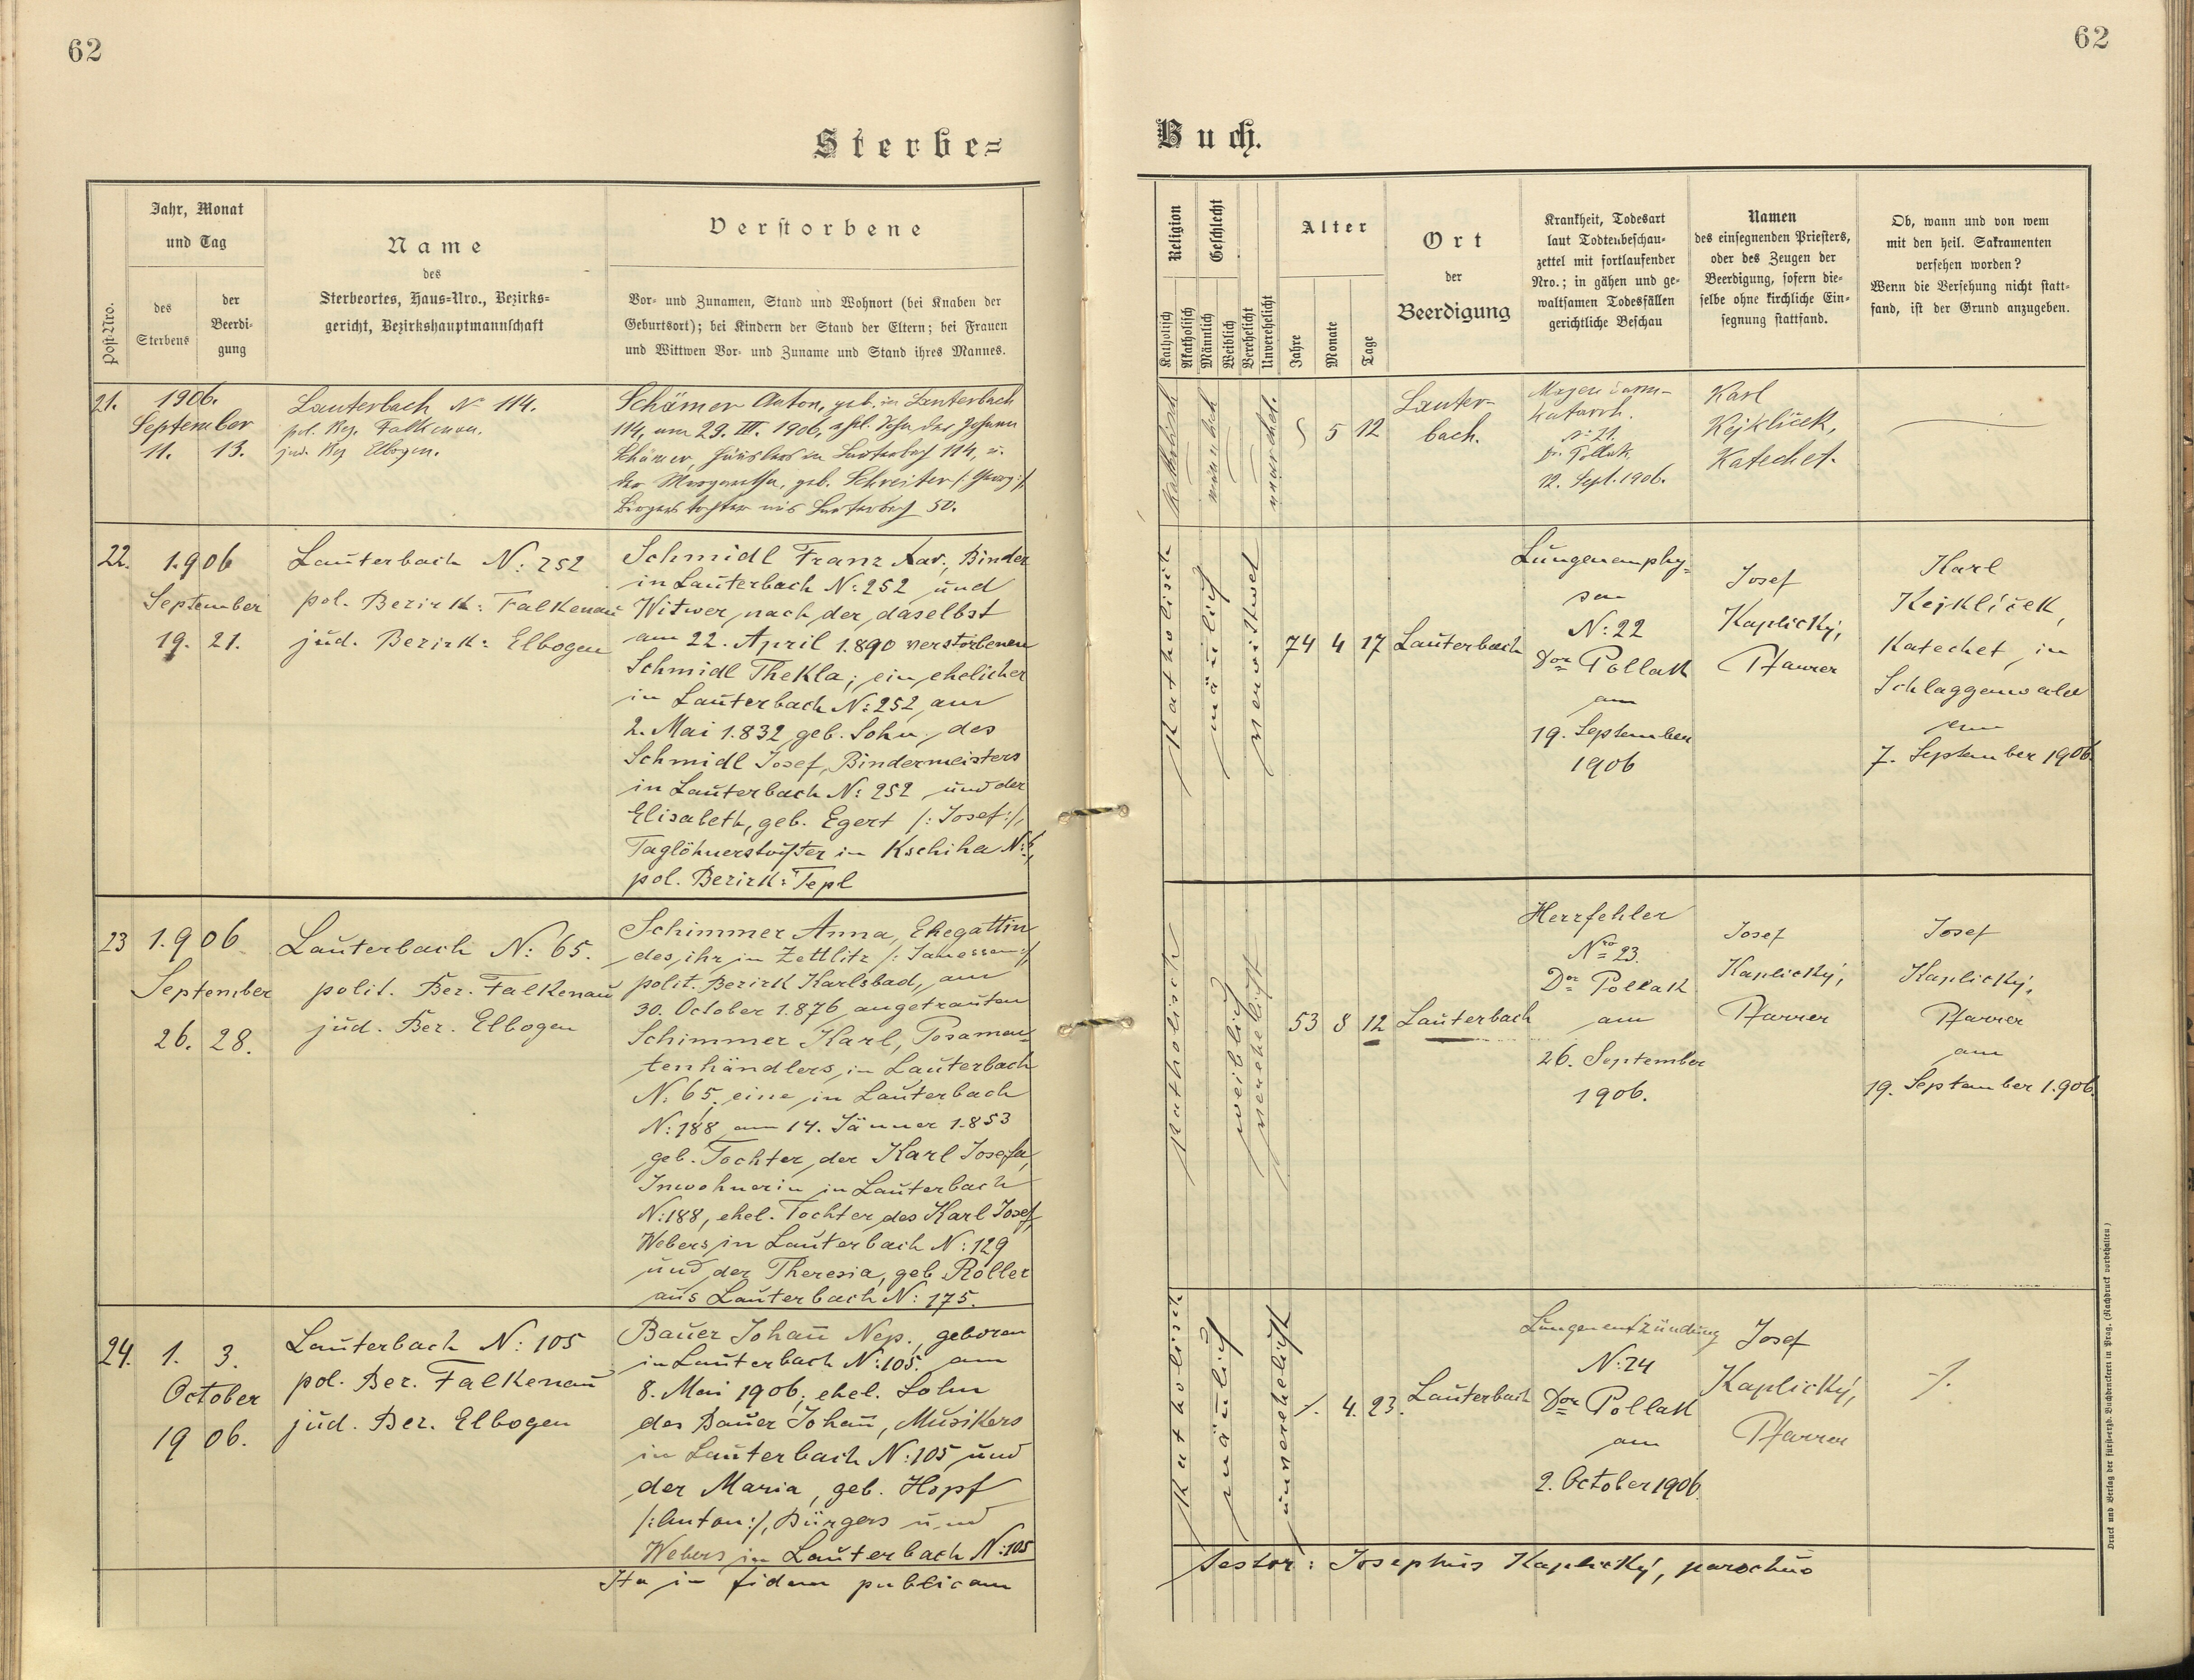 62
62
Sterbe=
Buch.
Jahr, Monat
und Tag
Post-Nro.
des
Sterbens
der
Beerdi-
gung
Name
des
Sterbeortes, Haus-Nro., Bezirks-
gericht, Bezirkshauptmannschaft
Verstorbene
Vor- und Zunamen, Stand und Wohnort (bei Knaben der
Geburtsort); bei Kindern der Stand der Eltern; bei Frauen
und Wittwen Vor- und Zuname und Stand ihres Mannes.
Religion
Katholisch
Akatholisch
Geschlecht
Männlich
Weiblich
Verehelicht
Unverehelicht
Alter
Jahre
Monate
Tage
Ort
der
Beerdigung
Krankheit, Todesart
laut Todtenbeschau-
zettel mit fortlaufender
Nro.; in gähen und ge-
waltsamen Todesfällen
gerichtliche Beschau
Namen
des einsegnenden Priesters,
oder des Zeugen der
Beerdigung, sofern die-
selbe ohne kirchliche Ein-
segnung stattfand.
Ob, wann und von wem
mit den heil. Sakramenten
versehen worden?
Wenn die Versehung nicht statt-
fand, ist der Grund anzugeben.
21.
1906.
September
11. 13.
Lauterbach No 114.
pol. Bez. Falkenau.
jud. Bez Elbogen.
Schämer Anton, geb. in Lauterbach
114, am 29. III. 1906, ehl. Sohn des Johann
Schämer, Häuslers in Lauterbach 114, u.
der Margaretha, geb. Schreiter /: Georg :/,
Bürgerstochter aus Lauterbach 50.
katholisch
männlich
unverehel.
5 12
Lauter-
bach.
Magendarm-
katarrh.
No 21.
Dr. Pollak
12. Sept. 1906.
Karl
Kejklíček,
Katechet.
22.
1906
September
19. 21.
Lauterbach N: 252
pol. Bezirk: Falkenau
jud. Bezirk: Elbogen
Schmidl Franz Xav., Binder
in Lauterbach N: 252 und
Witwer nach der daselbst
am 22. April 1890 verstorbenen
Schmidl Thekla; ein ehelicher
in Lauterbach N: 252 am
2. Mai 1832 geb. Sohn des
Schmidl Josef, Bindermeisters
in Lauterbach N: 252 und der
Elisabeth, geb. Egert /: Josef :/,
Taglöhnerstochter in Kschiha N: 6,
pol. Bezirk: Tepl
katholisch
mänlich
verwittwet
74 4 17
Lauterbach
Lungenemphy-
sem
N: 22
Dor Pollak
am
19. September
1906
Josef
Kaplický,
Pfarrer
Karl
Kejklíček,
Katechet in
Schlaggenwald
am
7. September 1906.
23
1906
September
26. 28.
Lauterbach N: 65.
polit. Bez. Falkenau
jud. Bez. Elbogen
Schimmer Anna, Ehegattin
des, ihr in Zettlitz /: Janessen :/,
polit. Bezirk Karlsbad, am
30. October 1876 angetrauten
Schimmer Karl, Posamen-
tenhändlers in Lauterbach
N: 65; eine in Lauterbach
N: 188 am 14. Jänner 1853
geb. Tochter der Karl Josefa,
Inwohnerin in Lauterbach
N: 188, ehel. Tochter des Karl Josef,
Webers in Lauterbach N: 129
und der Theresia, geb. Roller
aus Lauterbach N: 175.
katholisch
weiblich
verehelicht
53 8 12
Lauterbach
Herzfehler
Nro 23.
Dor Pollak
am
26. September
1906.
Josef
Kaplický,
Pfarrer
Josef
Kaplický,
Pfarrer
am
19. September 1906.
24.
1. 3.
October
1906.
Lauterbach N: 105
pol. Bez. Falkenau
jud. Bez. Elbogen
Bauer Johan̄ Nep., geboren
in Lauterbach N: 105. am
8. Mai 1906; ehel. Sohn
des Bauer Johan̄, Musikers
in Lauterbach N: 105 und
der Maria, geb. Hopf
/: Anton :/, Bürgers und
Webers in Lauterbach N: 105
katholisch
mänlich
unverehelicht
/. 4. 23.
Lauterbach
Lungenentzündung
N: 24
Dor Pollak
am
2. October 1906.
Josef
Kaplický,
Pfarrer
/.
Ita in fidem publicam
testor: Josephus Kaplický, parochus
Druck und Verlag der fürst-erzb. Buchdruckerei in Prag. (Nachdruck vorbehalten.)